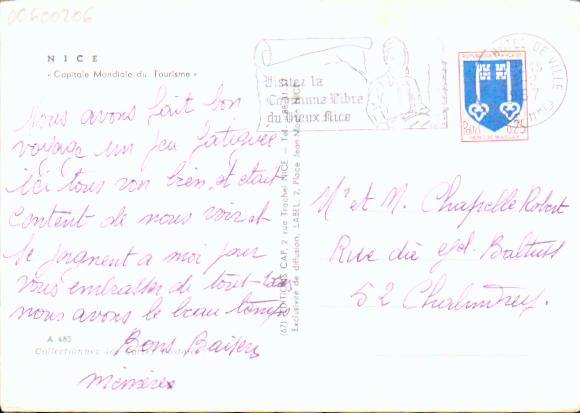 00600206
NICE
« Capitale Mondiale du Tourisme »
Nous avons fait bon
voyage un peu fatiguée
ici tous von bien et était
content de nous voir et
se joignent a moi pour
vous embrasser de tout
nous avons le beau temps
Bons Baisers
A 680
Collectionnez les
(67) EDITIONS CAP, 2 rue Trachel NICE - Tel.
Exclusivité de diffusion, LABEL, 2, Place Jean NICE
Visitez la
Commune Libre
du Vieux Nice
HOTEL DE VILLE
REPUBLIQUE FRANÇAISE
Postes 0,25
Mr et M. Chapelle Robert
Rue du
52 Chalindrey.